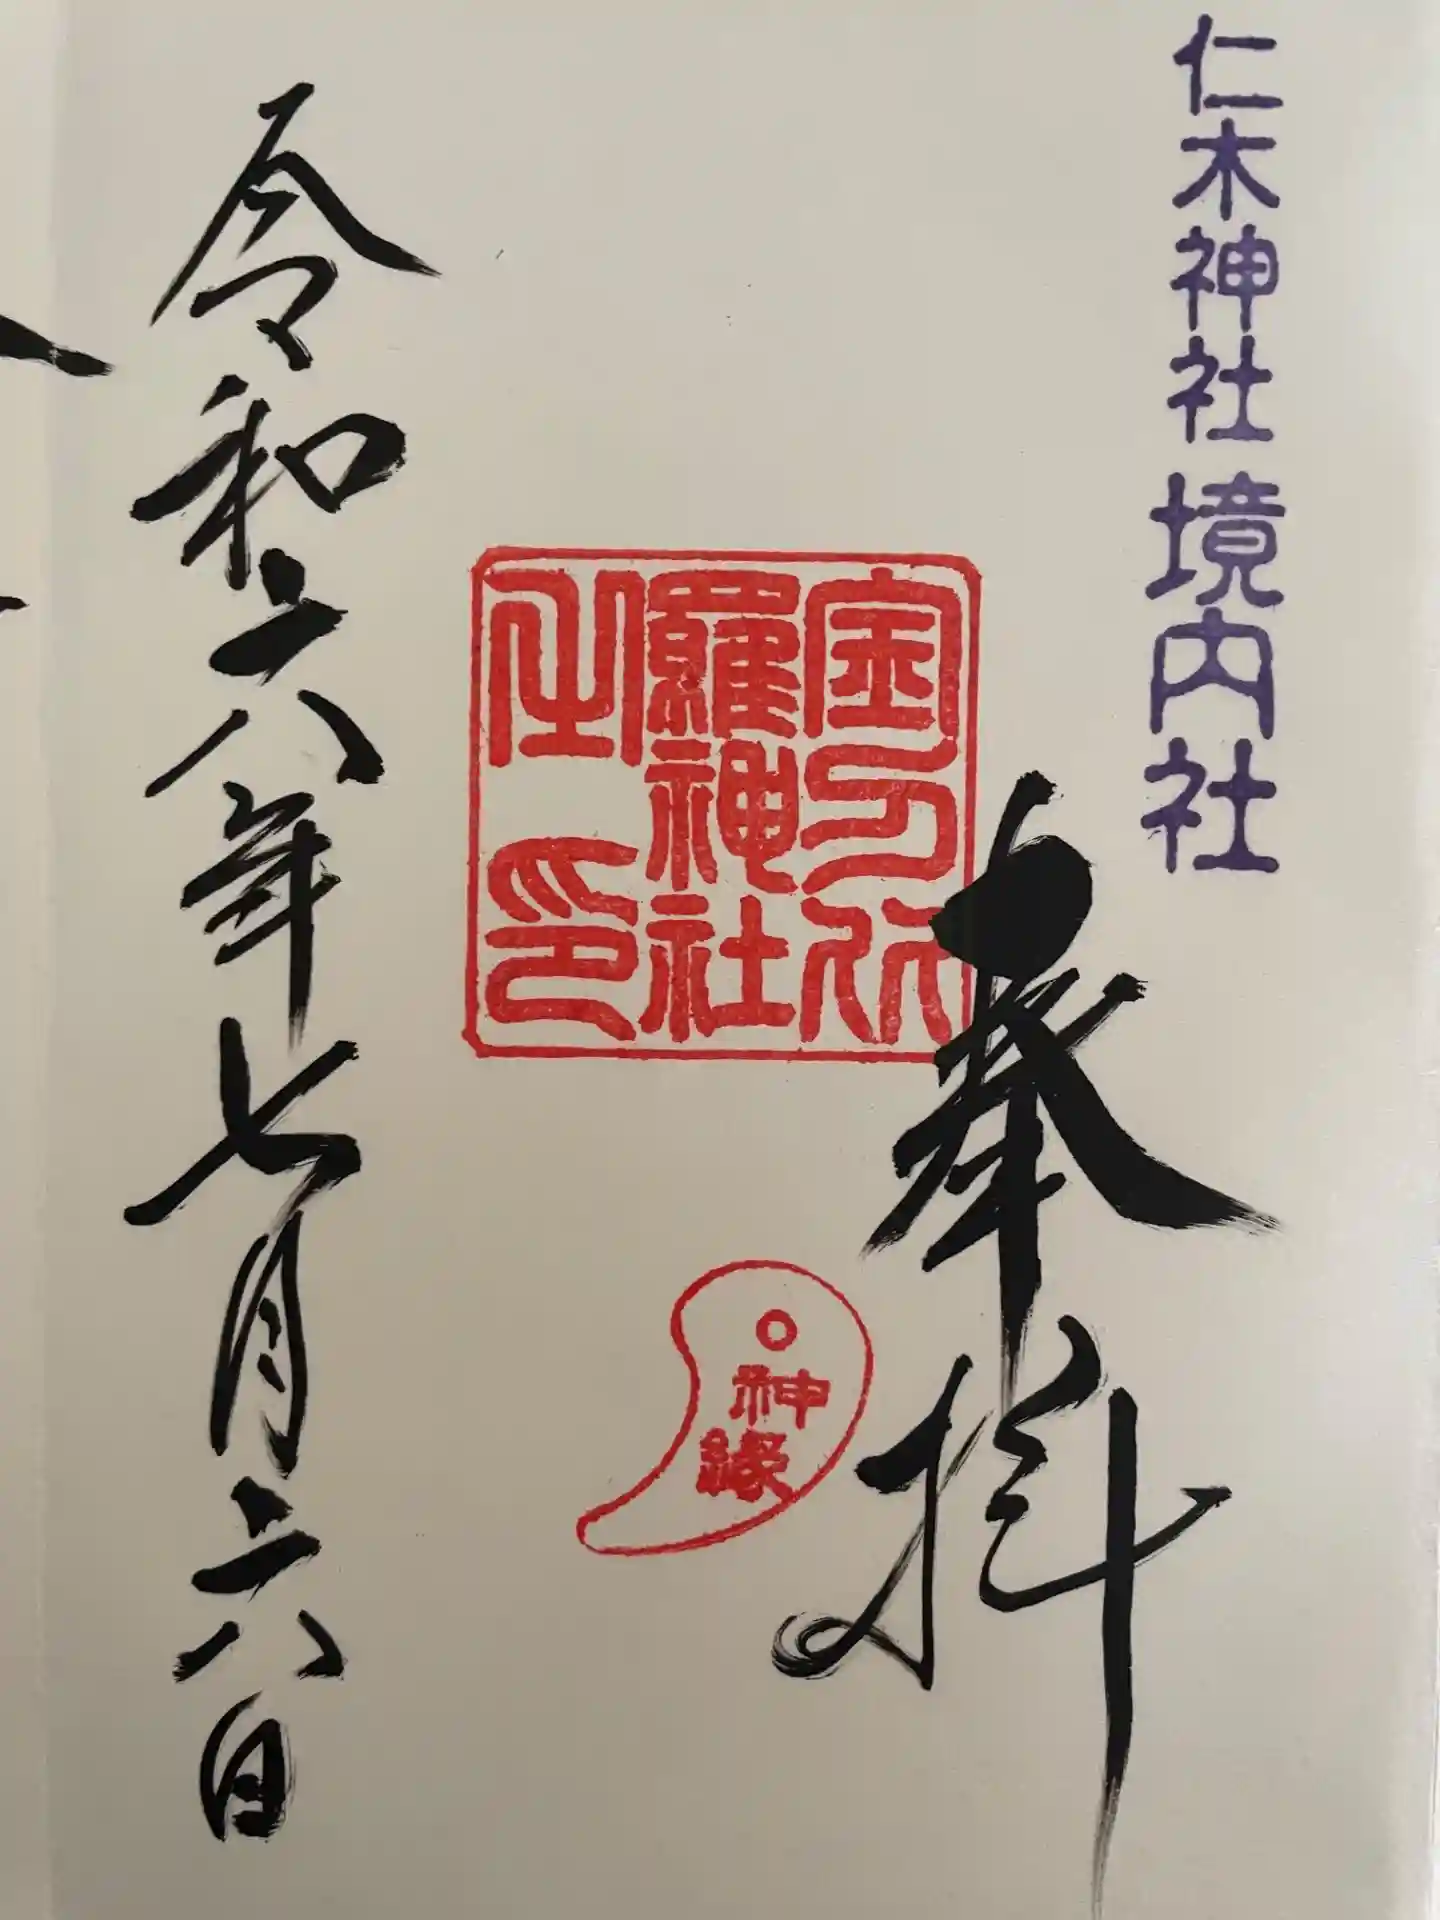 仁木神社 境内社
奉拝
金刀比
羅神社
之印
神
縁
令和六年七月六日